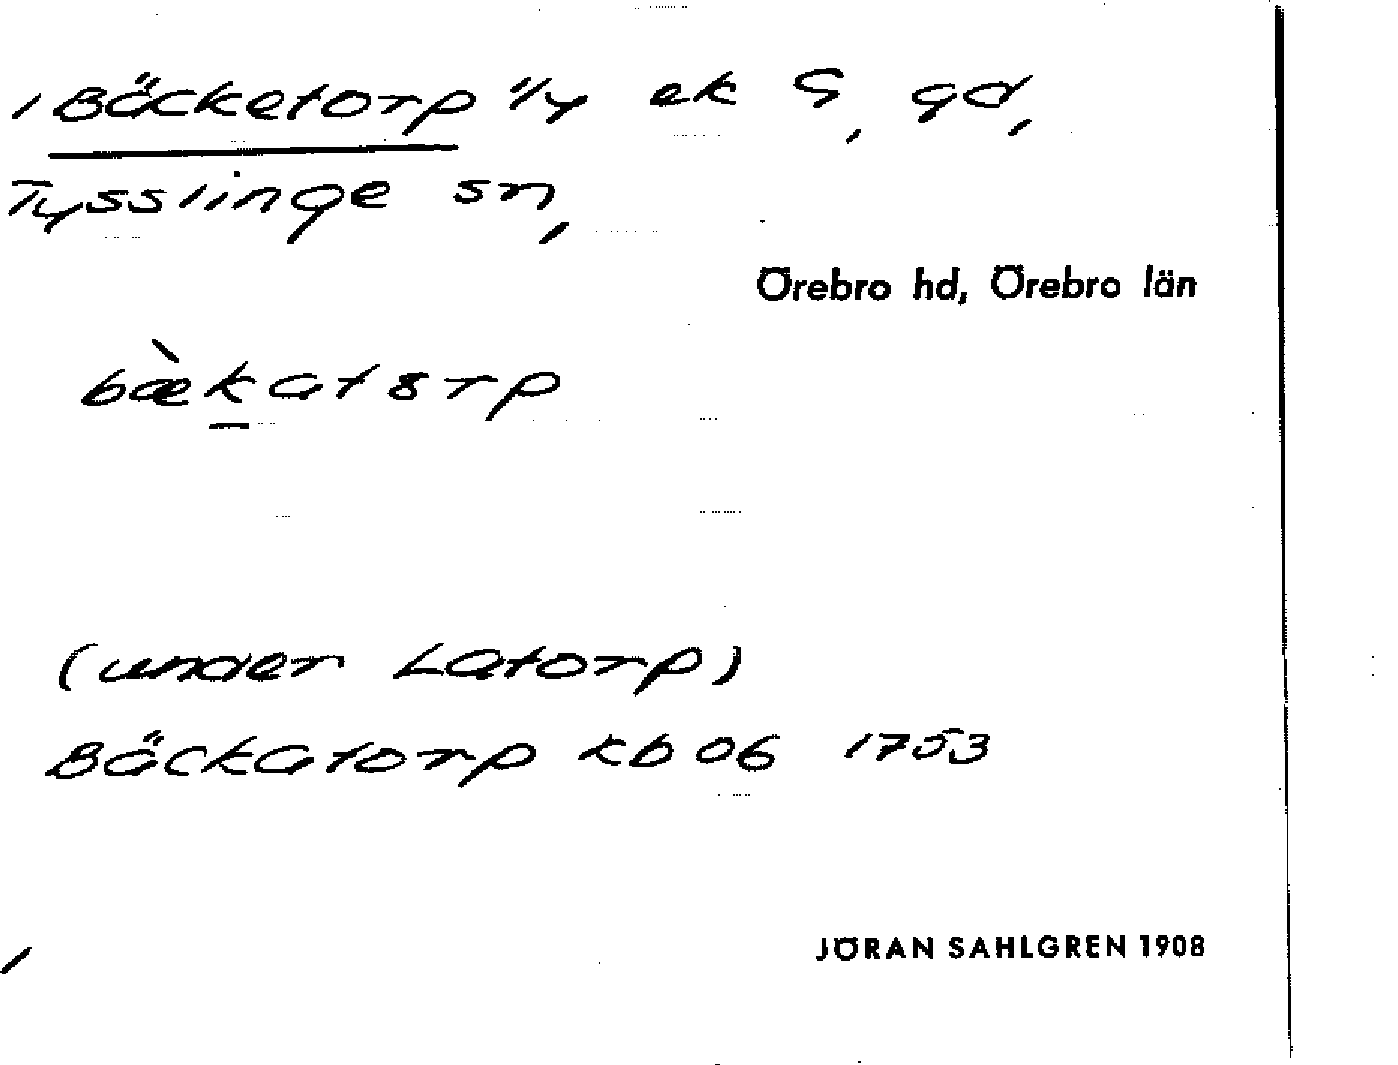 Bäcketorp 1/4 ek S, gd,
Tysslinge sn,
Örebro hd, Örebro län
bækatorp
(under Latorp)
Bäckatorp kb 06 1753
JÖRAN SAHLGREN 1908